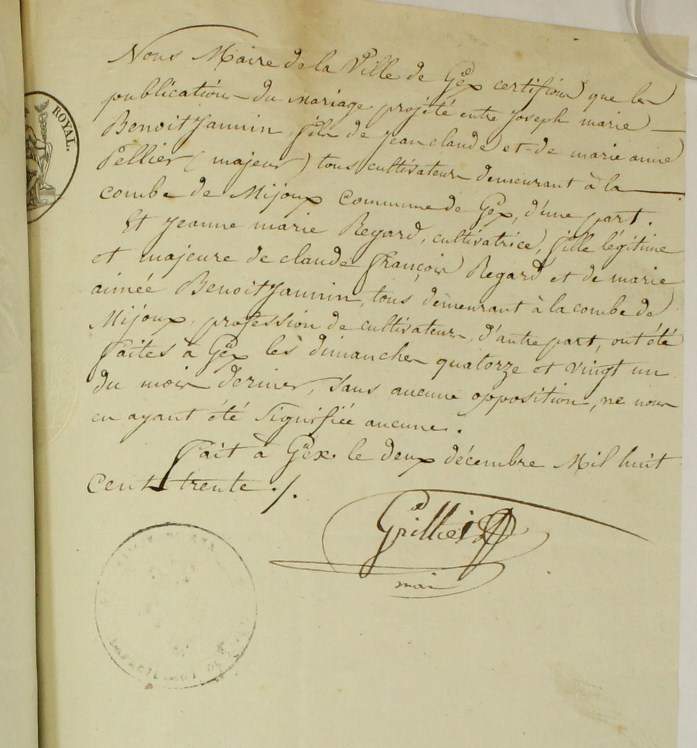 Nous Maire de la Ville de Gex certifions que les
publications du mariage projeté entre Joseph marie
Benoit Jannin, fils de jean claude et de marie aimé
Pellier (majeur) tous cultivateurs demeurant à la
combe de Mijoux Commune de Gex, d'une part.
Et Jeanne marie Regard, cultivatrice, fille légitime
et majeure de claude françois Regard et de marie
aimée Benoit Jannin, tous demeurant à la combe de
Mijoux profession de cultivateurs, d'autre part, ont été
faites à Gex les dimanches quatorze et vingt un
du mois dernier, sans aucune opposition, ne nous
en ayant été signifiée aucune.
Fait à Gex le deux décembre Mil huit
cent trente ./.
maire
ROYAL.